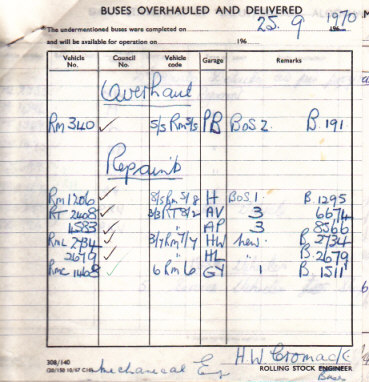 BUSES OVERHAULED AND DELIVERED
The undermentioned buses were completed on 25. 9 1970
and will be available for operation on 196
Vehicle No. Council No. Vehicle code Garage Remarks
Overhaul
Rm 340 ✓ 5/5 Rm 5/5 PB BOS 2. B 191
Repaints
Rm 1206 ✓ 8/5 Rm 5/8 H BOS 1. B 1295
RT 2408 ✓ 3/3 RT 8/2 AV 3 6674
4583 ✓ " AP 3 8566
RmL 2734 ✓ 3/7 Rm 7/7 HW new. B 2734
2679 ✓ " HL " B 2679
Rmc 1468 ✓ 6 Rm 6 GY 1 B 1511
308/140
Mechanical Eng H.W. Cromack
ROLLING STOCK ENGINEER